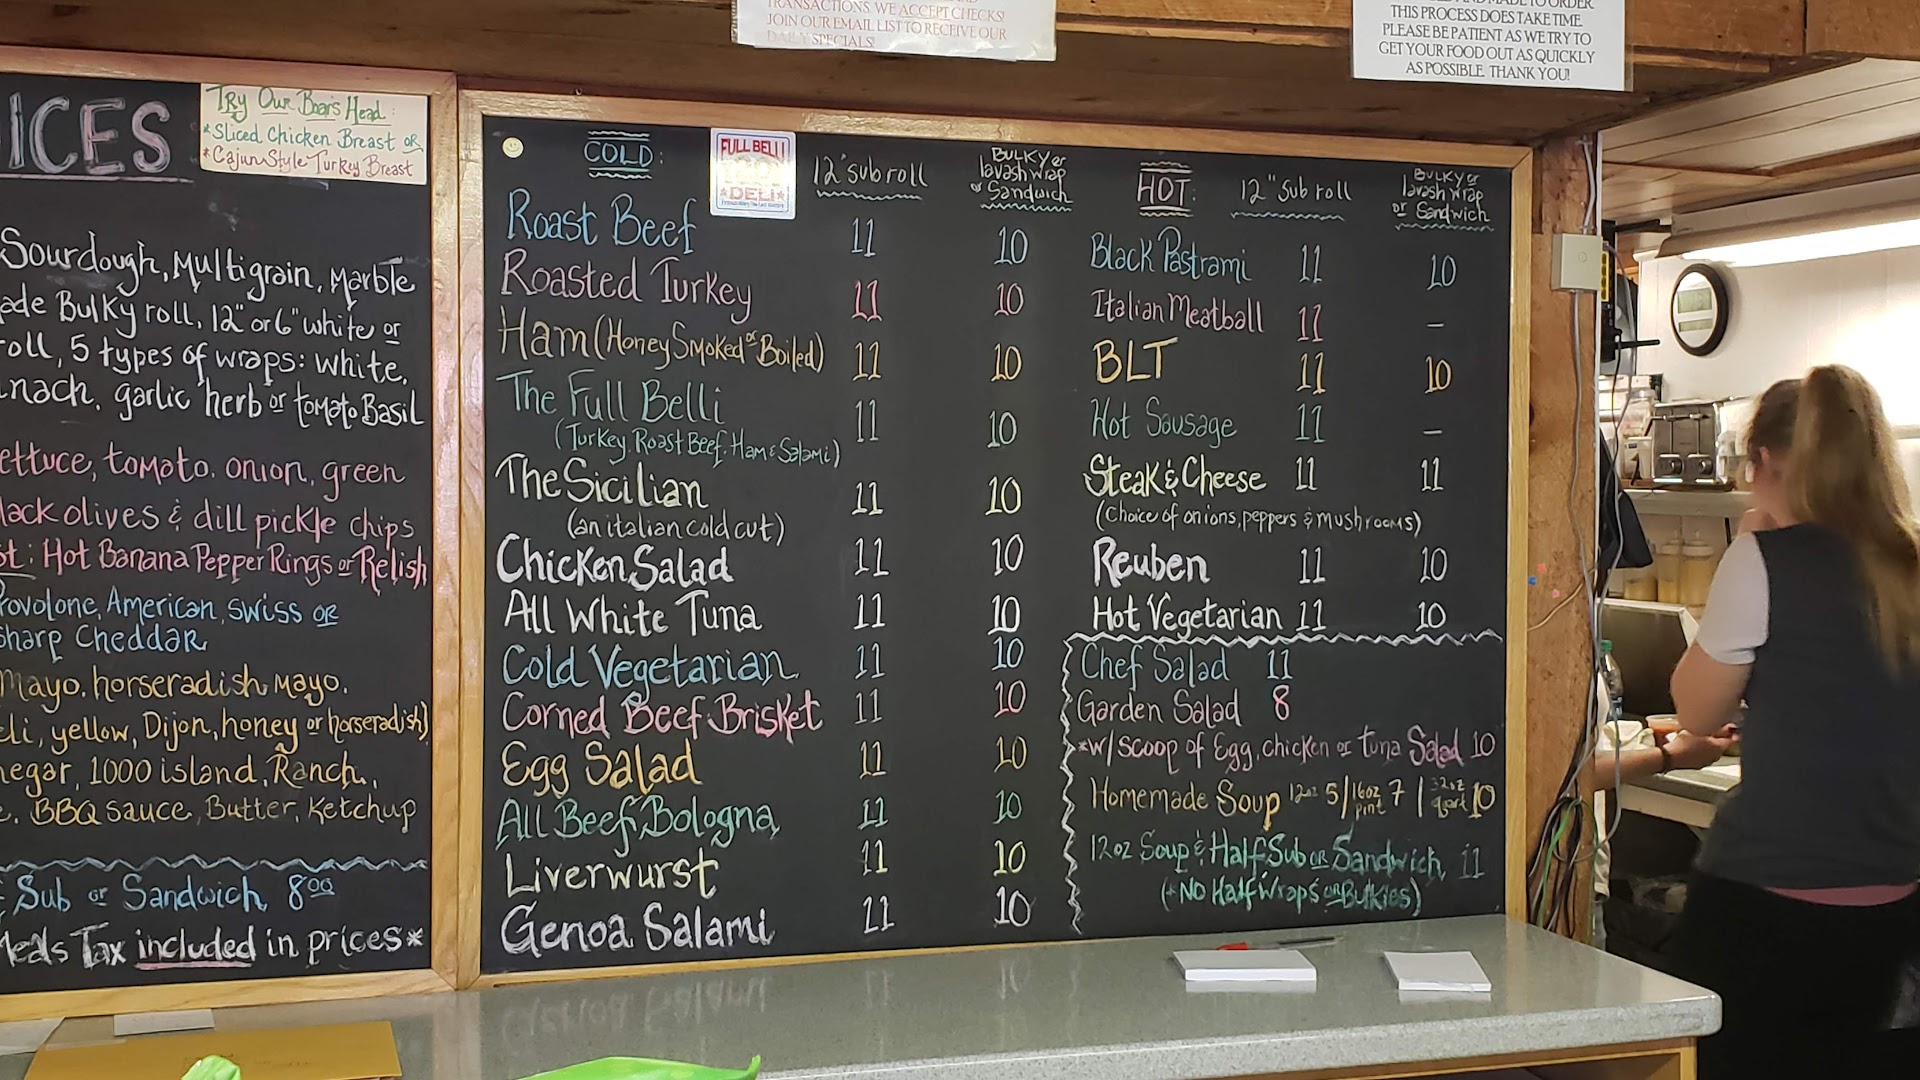 TRANSACTIONS. WE ACCEPT CHECKS!
JOIN OUR EMAIL LIST TO RECEIVE OUR
DAILY SPECIALS!
AND MADE TO ORDER.
THIS PROCESS DOES TAKE TIME.
PLEASE BE PATIENT AS WE TRY TO
GET YOUR FOOD OUT AS QUICKLY
AS POSSIBLE. THANK YOU!
ICES
Try Our Boar's Head:
*Sliced Chicken Breast or
*Cajun Style Turkey Breast
Sourdough, Multigrain, Marble
ade Bulky roll, 12" or 6" white or
roll, 5 types of wraps: white,
nach, garlic herb or tomato Basil
ettuce, tomato, onion, green
lack olives & dill pickle chips
st: Hot Banana Pepper Rings or Relish
rovolone, American, swiss or
sharp Cheddar
Mayo, horseradish mayo,
eli, yellow, Dijon, honey or horseradish)
negar, 1000 island, Ranch,
e, BBQ sauce, Butter, Ketchup
Sub or Sandwich 8.00
Meals Tax included in prices*
COLD: 12" sub roll Bulky or lavash wrap or Sandwich
FULL BELLI
DELI
Roast Beef 11 10
Roasted Turkey 11 10
Ham (Honey Smoked or Boiled) 11 10
The Full Belli 11 10
(Turkey, Roast Beef, Ham & Salami)
The Sicilian 11 10
(an italian cold cut)
Chicken Salad 11 10
All White Tuna 11 10
Cold Vegetarian 11 10
Corned Beef Brisket 11 10
Egg Salad 11 10
All Beef Bologna 11 10
Liverwurst 11 10
Genoa Salami 11 10
HOT: 12" sub roll Bulky or lavash wrap or Sandwich
Black Pastrami 11 10
Italian Meatball 11 –
BLT 11 10
Hot Sausage 11 –
Steak & Cheese 11 11
(choice of onions, peppers & mushrooms)
Reuben 11 10
Hot Vegetarian 11 10
Chef Salad 11
Garden Salad 8
*w/scoop of Egg, chicken or tuna Salad 10
Homemade Soup 12oz 5 / 16oz pint 7 / 32oz quart 10
12oz Soup & Half Sub or Sandwich 11
(*No Half Wraps or Bulkies)